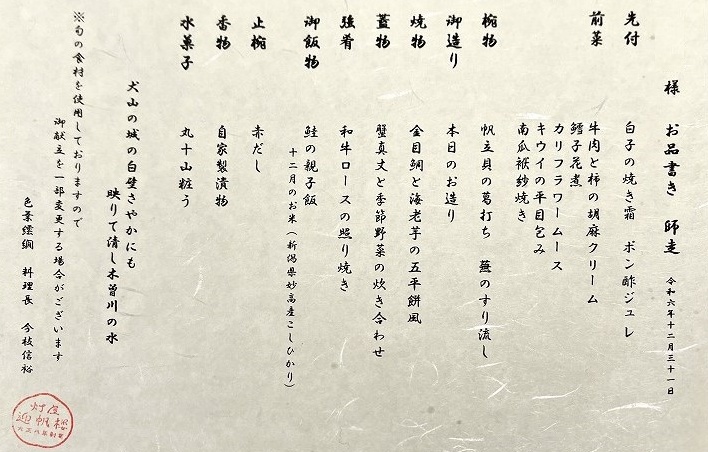 様　お品書き　師走　令和六年十二月三十一日
先付　白子の焼き霜　ポン酢ジュレ
前菜　牛肉と柿の胡麻クリーム
鱈子花煮
カリフラワームース
キウイの平目包み
南瓜袱紗焼き
椀物　帆立貝の葛打ち　蕪のすり流し
御造り　本日のお造り
焼物　金目鯛と海老芋の五平餅風
蓋物　蟹真丈と季節野菜の炊き合わせ
強肴　和牛ロースの照り焼き
御飯物　鮭の親子飯
十二月のお米（新潟県妙高産こしひかり）
止椀　赤だし
香物　自家製漬物
水菓子　丸十山粧う
犬山の城の白壁さやかにも
映りて清し木曽川の水
※旬の食材を使用しておりますので
御献立を一部変更する場合がございます
色葉繧繝　料理長　今枝信裕
灯屋
迎帆楼